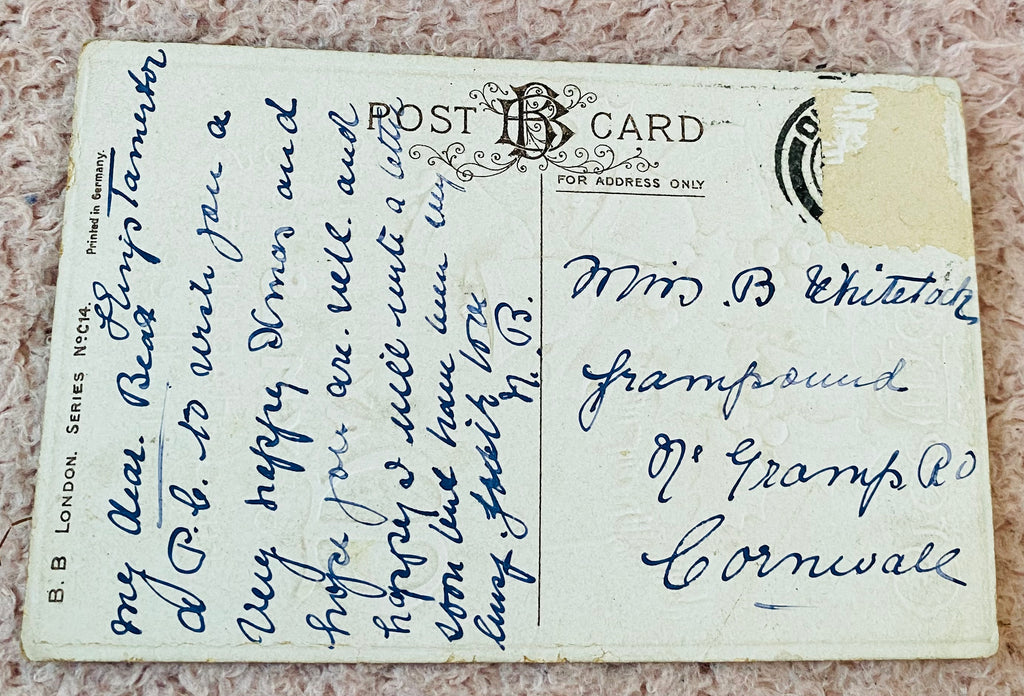 POST CARD
FOR ADDRESS ONLY
B. B LONDON. SERIES No C14.
Printed in Germany.
Tamerton
My dear. Beat
a P.C. to wish you a
very happy Xmas and
hope you are well and
happy I will write a letter
soon but have been very
busy. love
N. B.
Miss. B Whitelock
Grampound
Nr Gramp. Rd
Cornwall